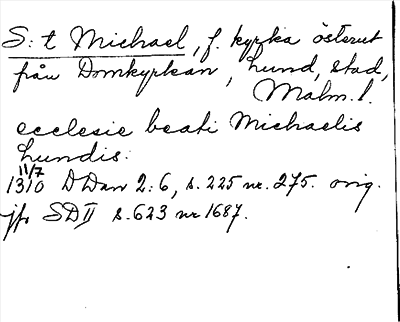 S:t Michael, f. kyrka österut
från Domkyrkan, Lund, stad,
Malm. l.
ecclesie beati Michaelis
Lundis.
11/7
1310 DDan 2:6, s. 225 nr. 275. orig.
jfr SD II s. 623 nr 1687.